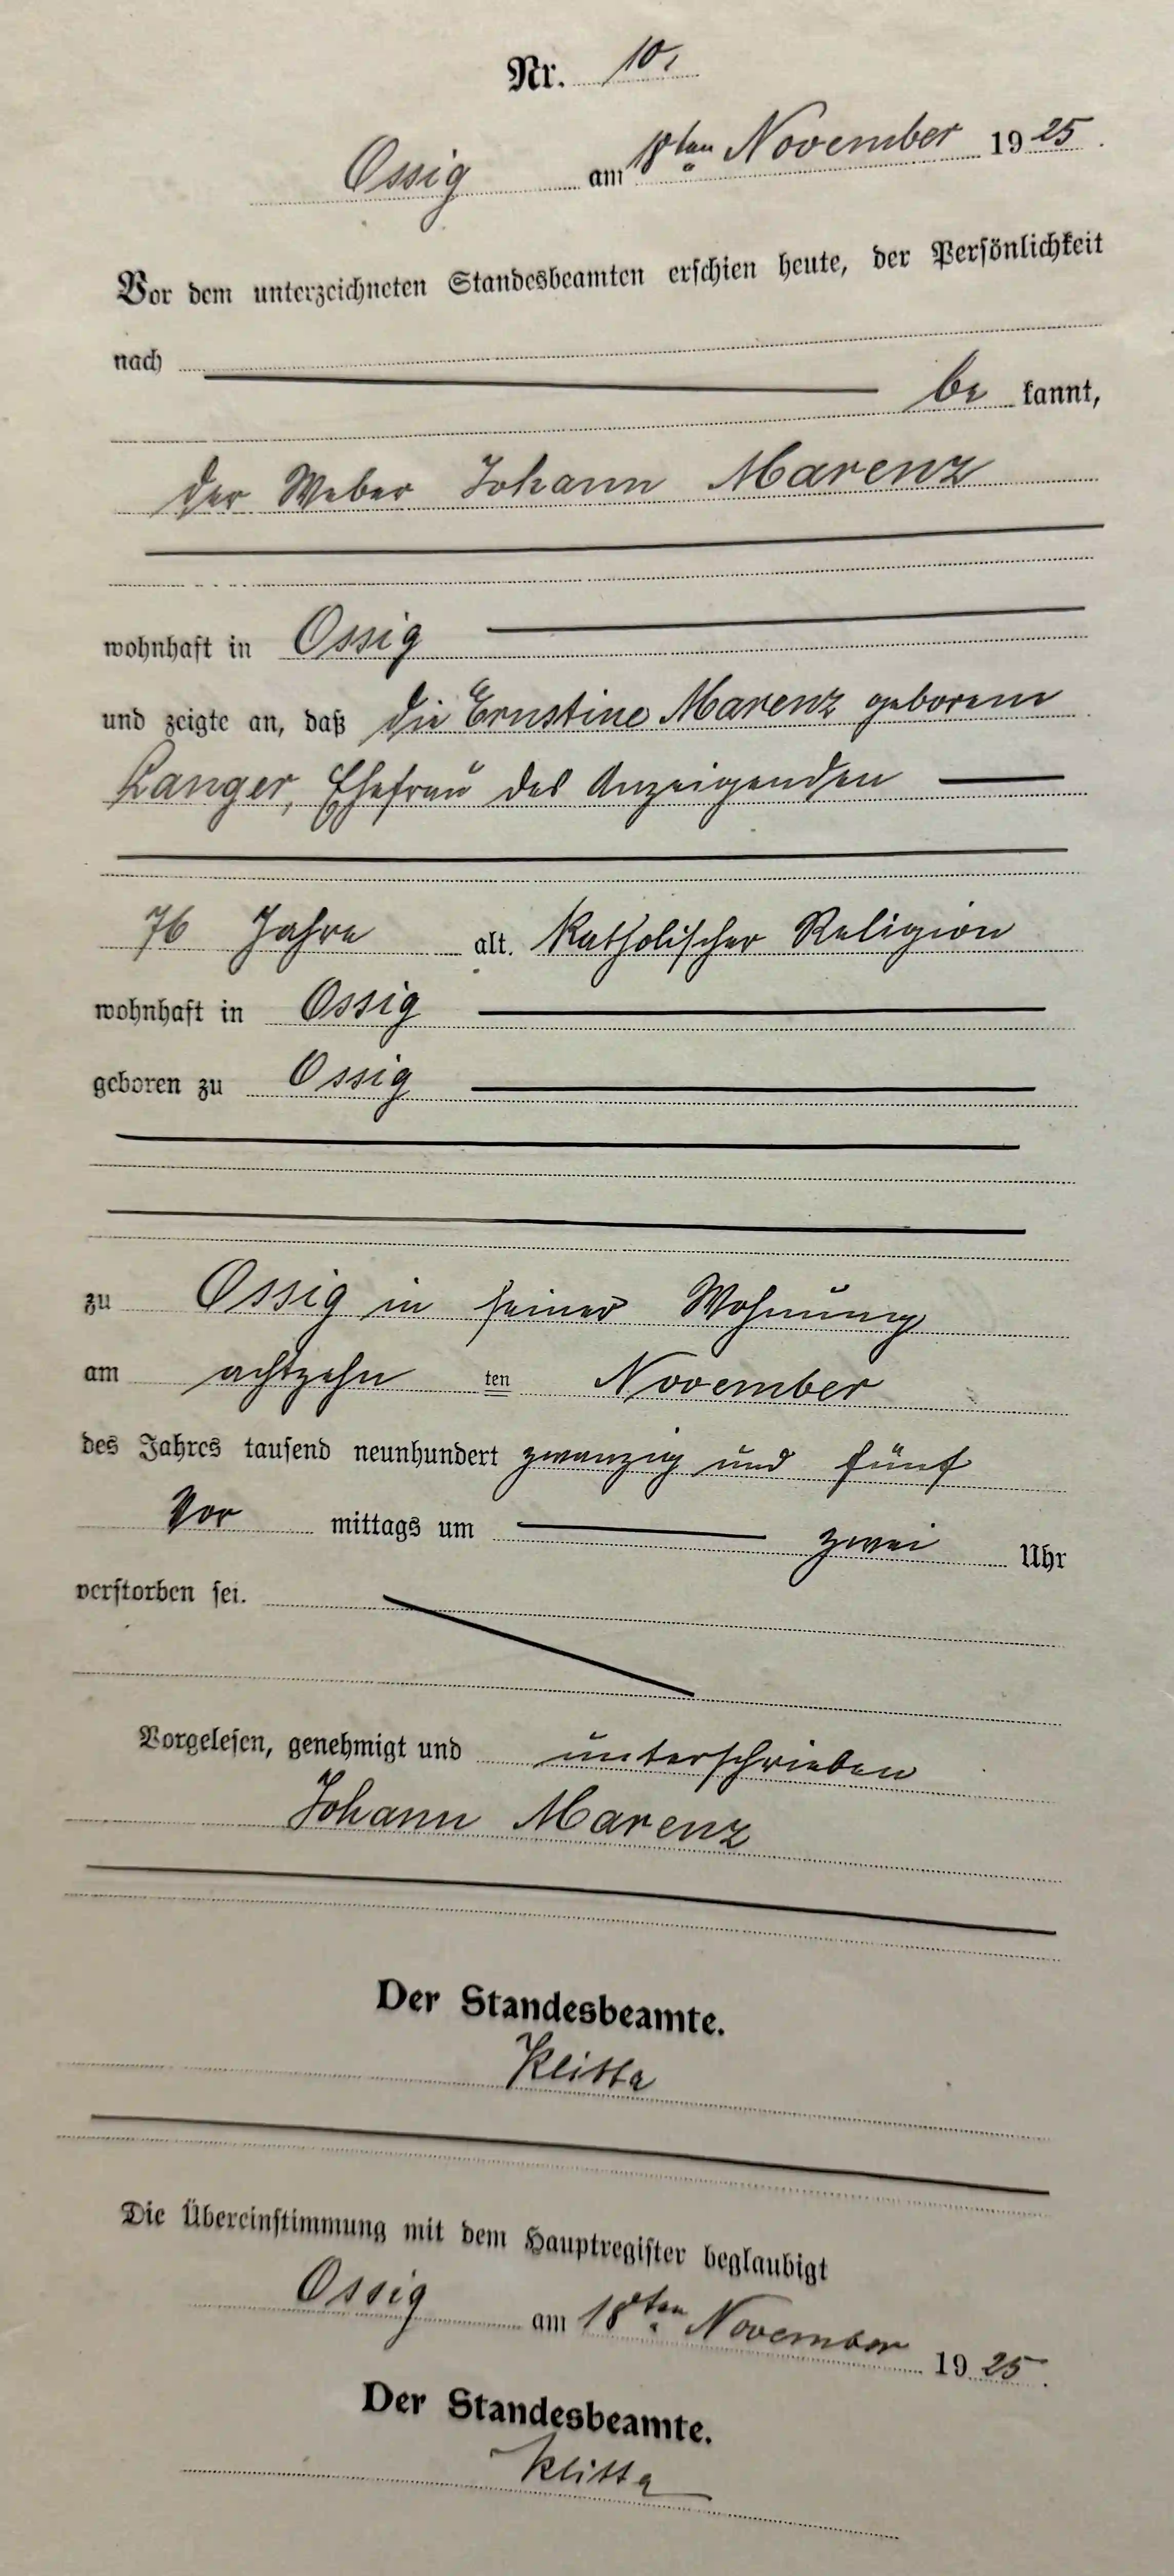 Nr. 10.
Ossig am 18ten November 1925.
Vor dem unterzeichneten Standesbeamten erschien heute, der Persönlichkeit
nach
be kannt,
der Weber Johann Marenz
wohnhaft in Ossig
und zeigte an, daß die Ernstine Marenz geborene
Langer, Ehefrau des Anzeigenden
76 Jahre alt. Katholischer Religion
wohnhaft in Ossig
geboren zu Ossig
zu Ossig in seiner Wohnung
am achtzehn ten November
des Jahres tausend neunhundert zwanzig und fünf
Vor mittags um zwei Uhr
verstorben sei.
Vorgelesen, genehmigt und unterschrieben
Johann Marenz
Der Standesbeamte.
Die Übereinstimmung mit dem Hauptregister beglaubigt
Ossig am 18ten November 1925.
Der Standesbeamte.